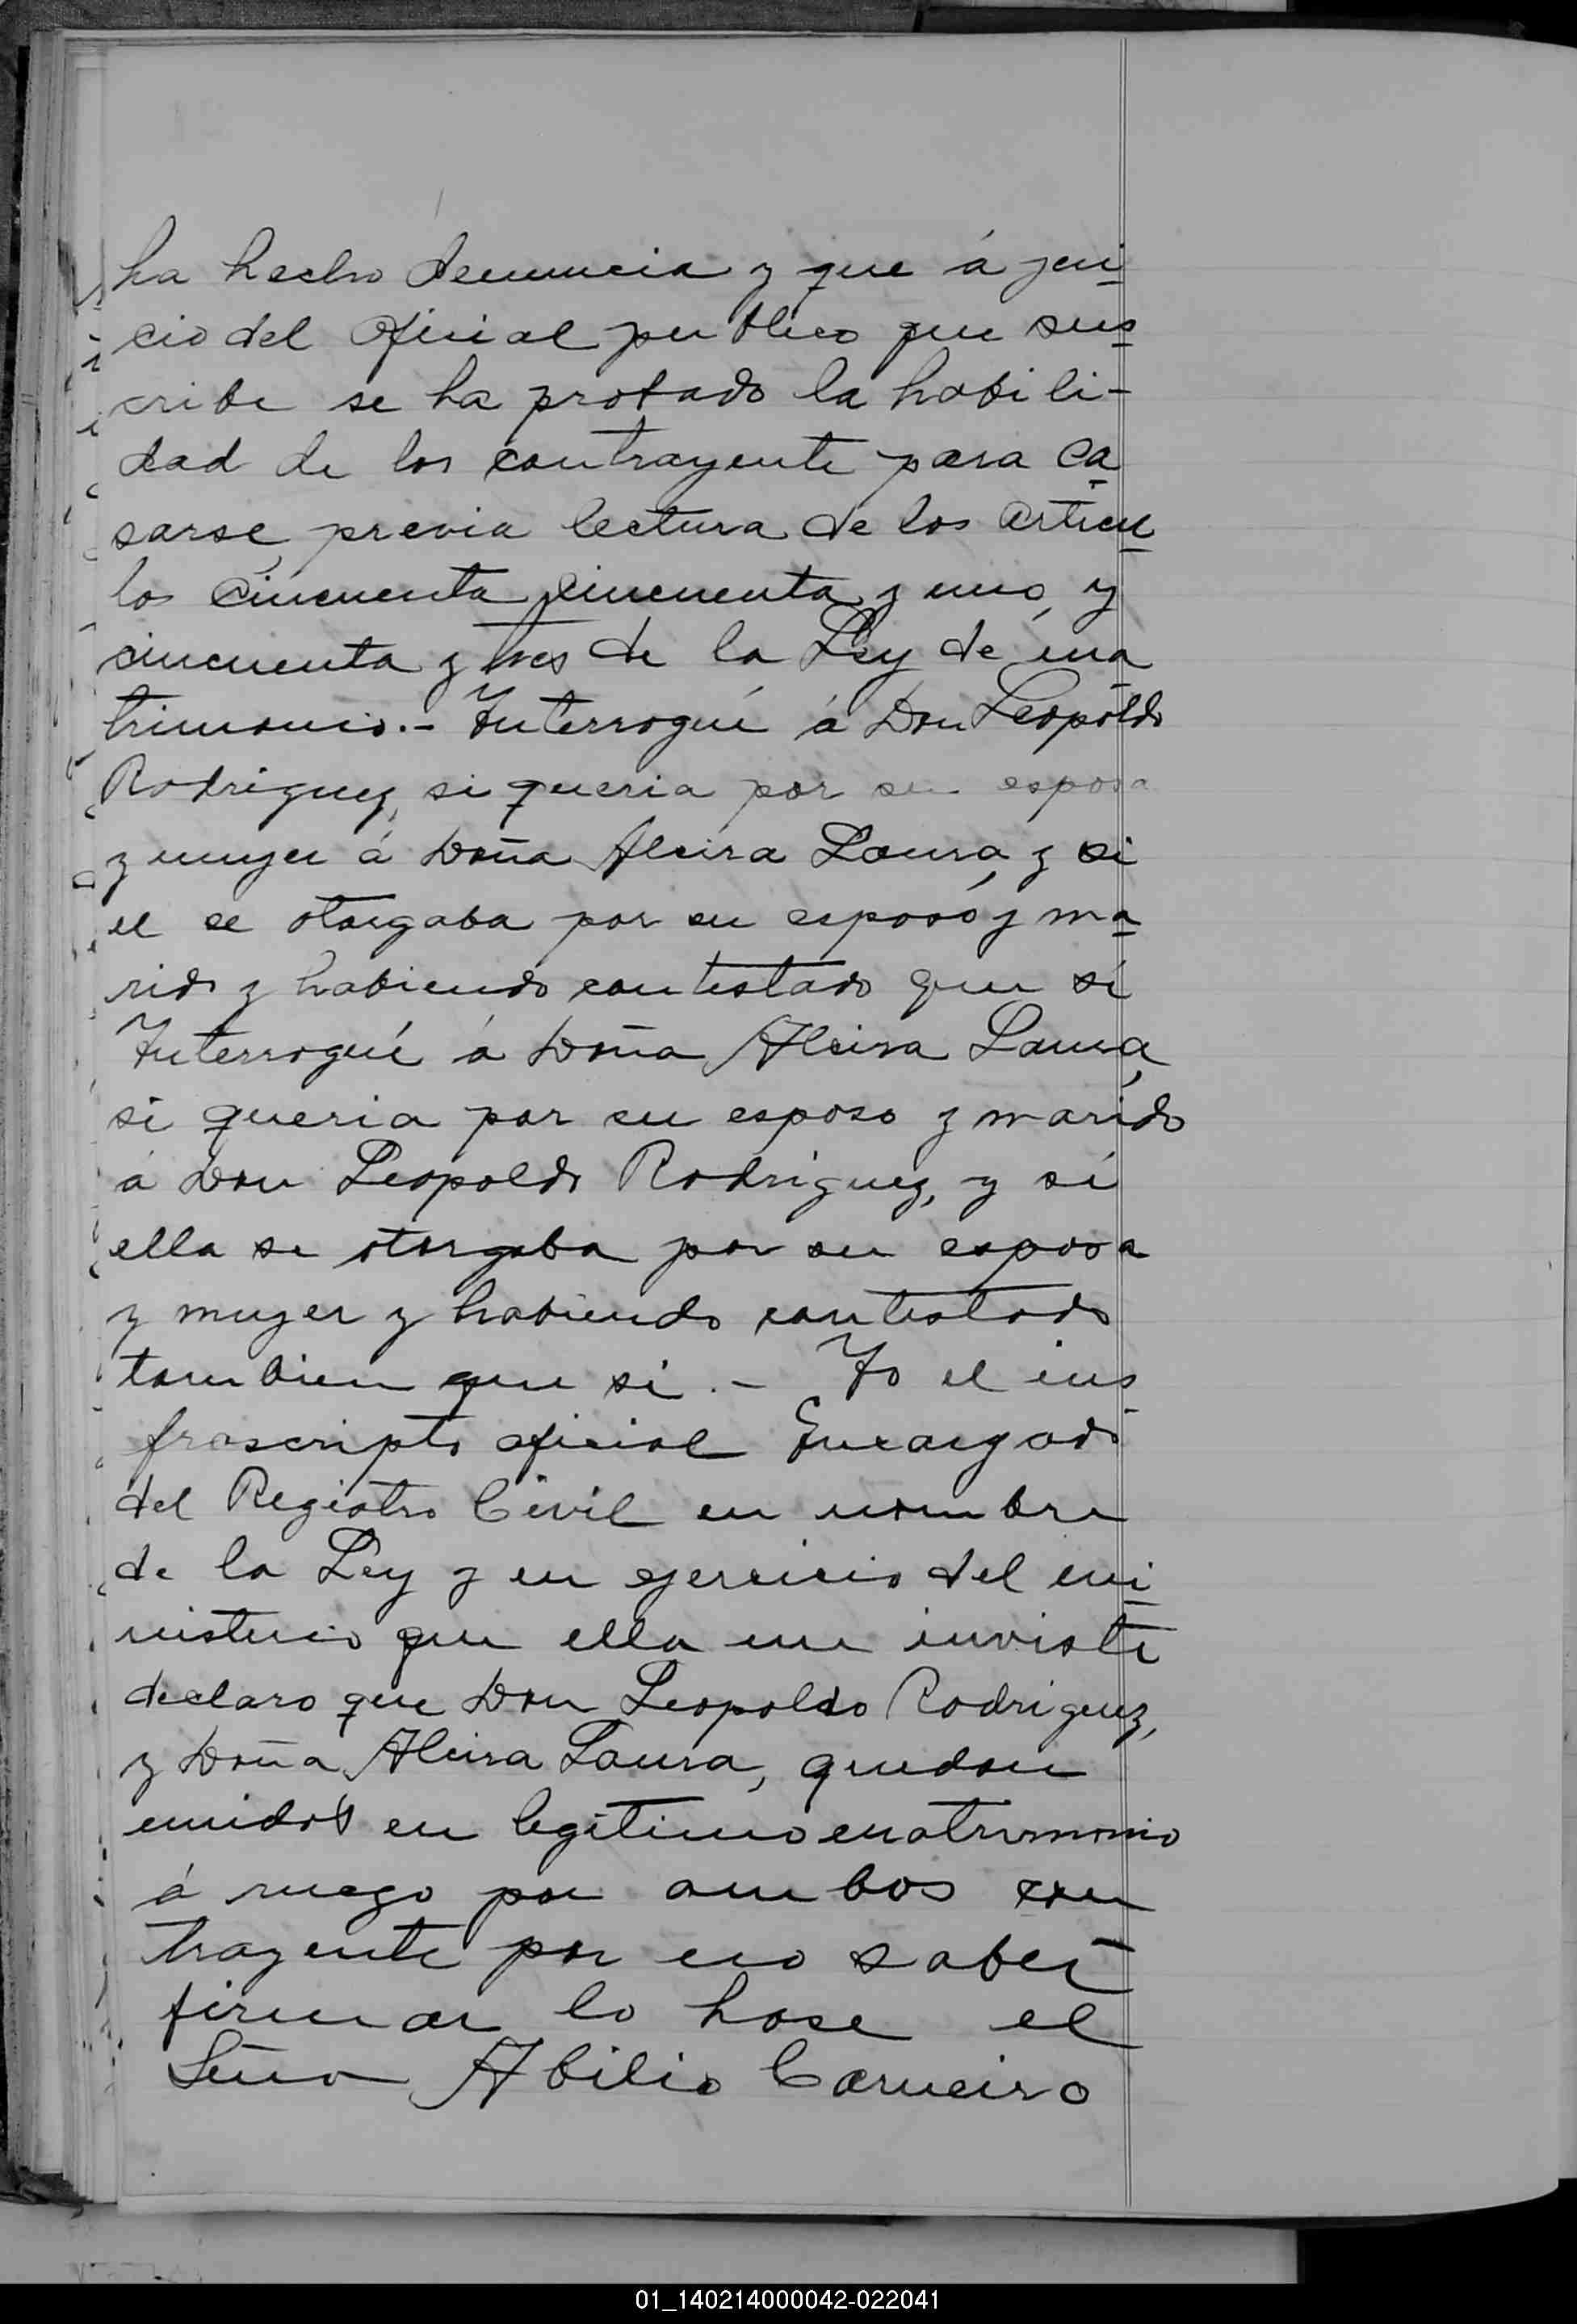 ha hecho denuncia y que á jui
cio del Oficial publico que sus
cribe se ha probado la habili-
dad de los contrayente para ca
sarse, previa lectura de los articu
los cincuenta, cincuenta y uno, y
cincuenta y tres de la Ley de ma
trimonio.- Interrogué á Don Leopoldo
Rodriguez, si queria por su esposa
y mujer á Doña Alcira Laura, y si
el se otorgaba por su esposo y ma
rido y habiendo contestado que si
Interrogué á Doña Alcira Laura,
si queria por su esposo y marido
á Don Leopoldo Rodriguez, y si
ella se otorgaba por su esposa
y mujer y habiendo contestado
tambien que si.- Yo el ins
frascripto oficial Encargado
del Registro Civil en nombre
de la Ley y en ejercicio del mi
nisterio que ella me inviste
declaro que Don Leopoldo Rodriguez,
y Doña Alcira Laura, quedan
unidos en legitimo matrimonio
á ruego por ambos con
trayente por no saber
firmar lo hase el
Señor Abilio Carneiro
01_140214000042-022041